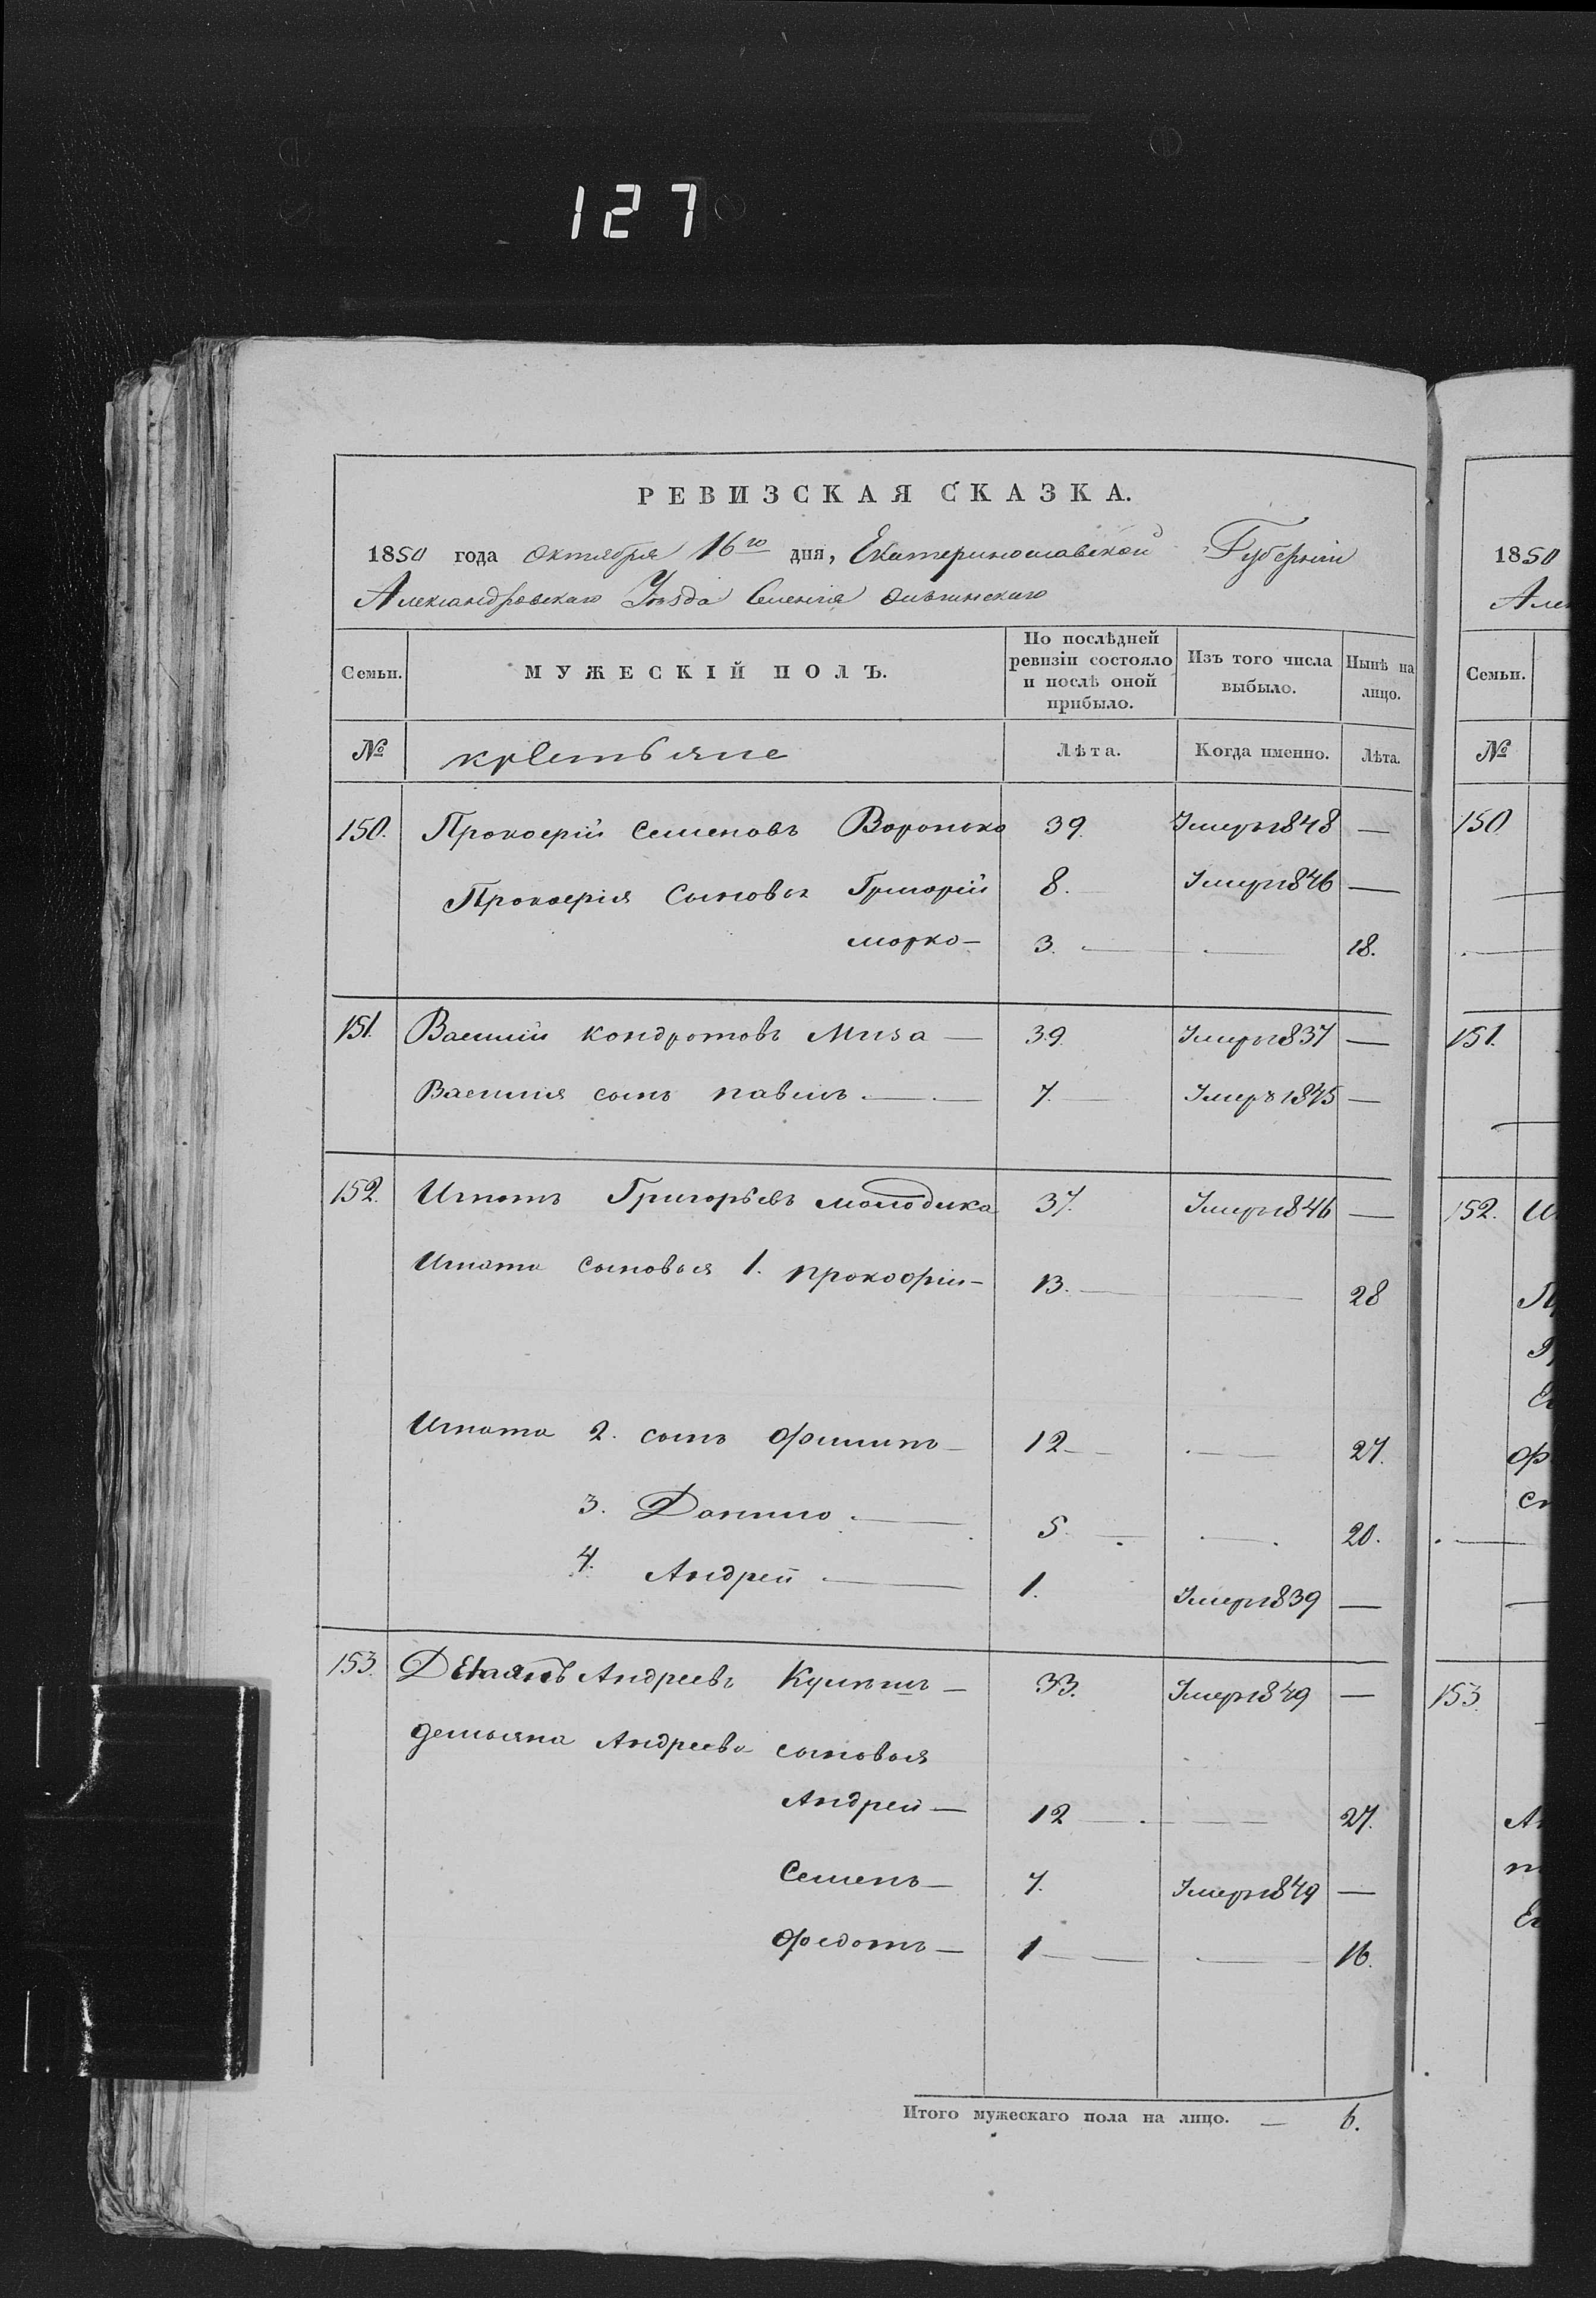 127
РЕВИЗСКАЯ СКАЗКА.
1850 года Октября 16го дня, Екатеринославской Губерніи
Александровскаго Уѣзда Селенія
Семьи.
МУЖЕСКІЙ ПОЛЪ.
По послѣдней ревизіи состояло и послѣ оной прибыло.
Изъ того числа выбыло.
Нынѣ на лицо.
№ крестьяне Лѣта. Когда именно. Лѣта.
150. Прокофій Семеновъ Воронько 39. Умеръ 1848 —
Прокофія Сыновья Григорій 8. — Умеръ 1846 —
марко — 3. — — 18.
151. Василій Кондратовъ Миза — 39. Умеръ 1837 —
Василия сынъ павелъ — — 7. — Умеръ 1845 —
152. Игнатъ Григорьевъ молодика 37. Умеръ 1846 —
Игната сыновья 1. прокофій — 13. — — 28
Игната 2. сынъ филипъ — 12 — — 27.
3. Данило — 5. — — 20.
4. Андрей — 1. Умеръ 1839 —
153. Демьянъ Андреевъ Кулишъ — 33. Умеръ 1849 —
демьяна Андреева сыновья
Андрей — 12 — — 27.
Семенъ — 7. Умеръ 1849 —
федотъ — 1 — — 16.
Итого мужескаго пола на лицо. — 6.
1850
Але
Семьи.
№
150
151.
152. И
П
Ег
ф
Ст
153
А
Ег